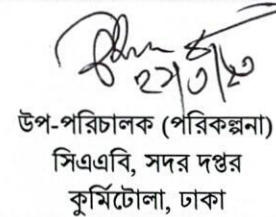 উপ-পরিচালক (পরিকল্পনা)
সিএএবি, সদর দপ্তর
কুর্মিটোলা, ঢাকা